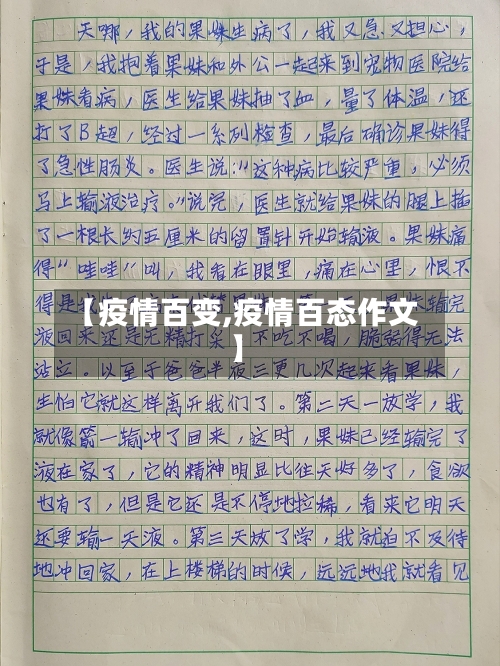 天哪，我的果妹生病了，我又急又担心，
于是，我抱着果妹和外公一起来到宠物医院给
果妹看病，医生给果妹抽了血，量了体温，还
打了B超，经过一系列检查，最后确诊果妹得
了急性肠炎。医生说：“这种病比较严重，必须
马上输液治疗。”说完，医生就给果妹的腿上插
了一根长约五厘米的留置针开始输液。果妹痛
得“哇哇”叫，我看在眼里，痛在心里，恨不
得是我
输完
【疫情百变,疫情百态作文
】
液回来还是无精打采，不吃不喝，脆弱得无法
站立。以至于爸爸半夜三更几次起来看果妹，
生怕它就这样离开我们了。第二天一放学，我
就像箭一输冲了回来，这时，果妹已经输完了
液在家了，它的精神明显比昨天好多了，食欲
也有了，但是它还是不停地拉稀，看来它明天
还要输一天液。第三天放了学，我就迫不及待
地冲回家，在上楼梯的时候，远远地我就看见